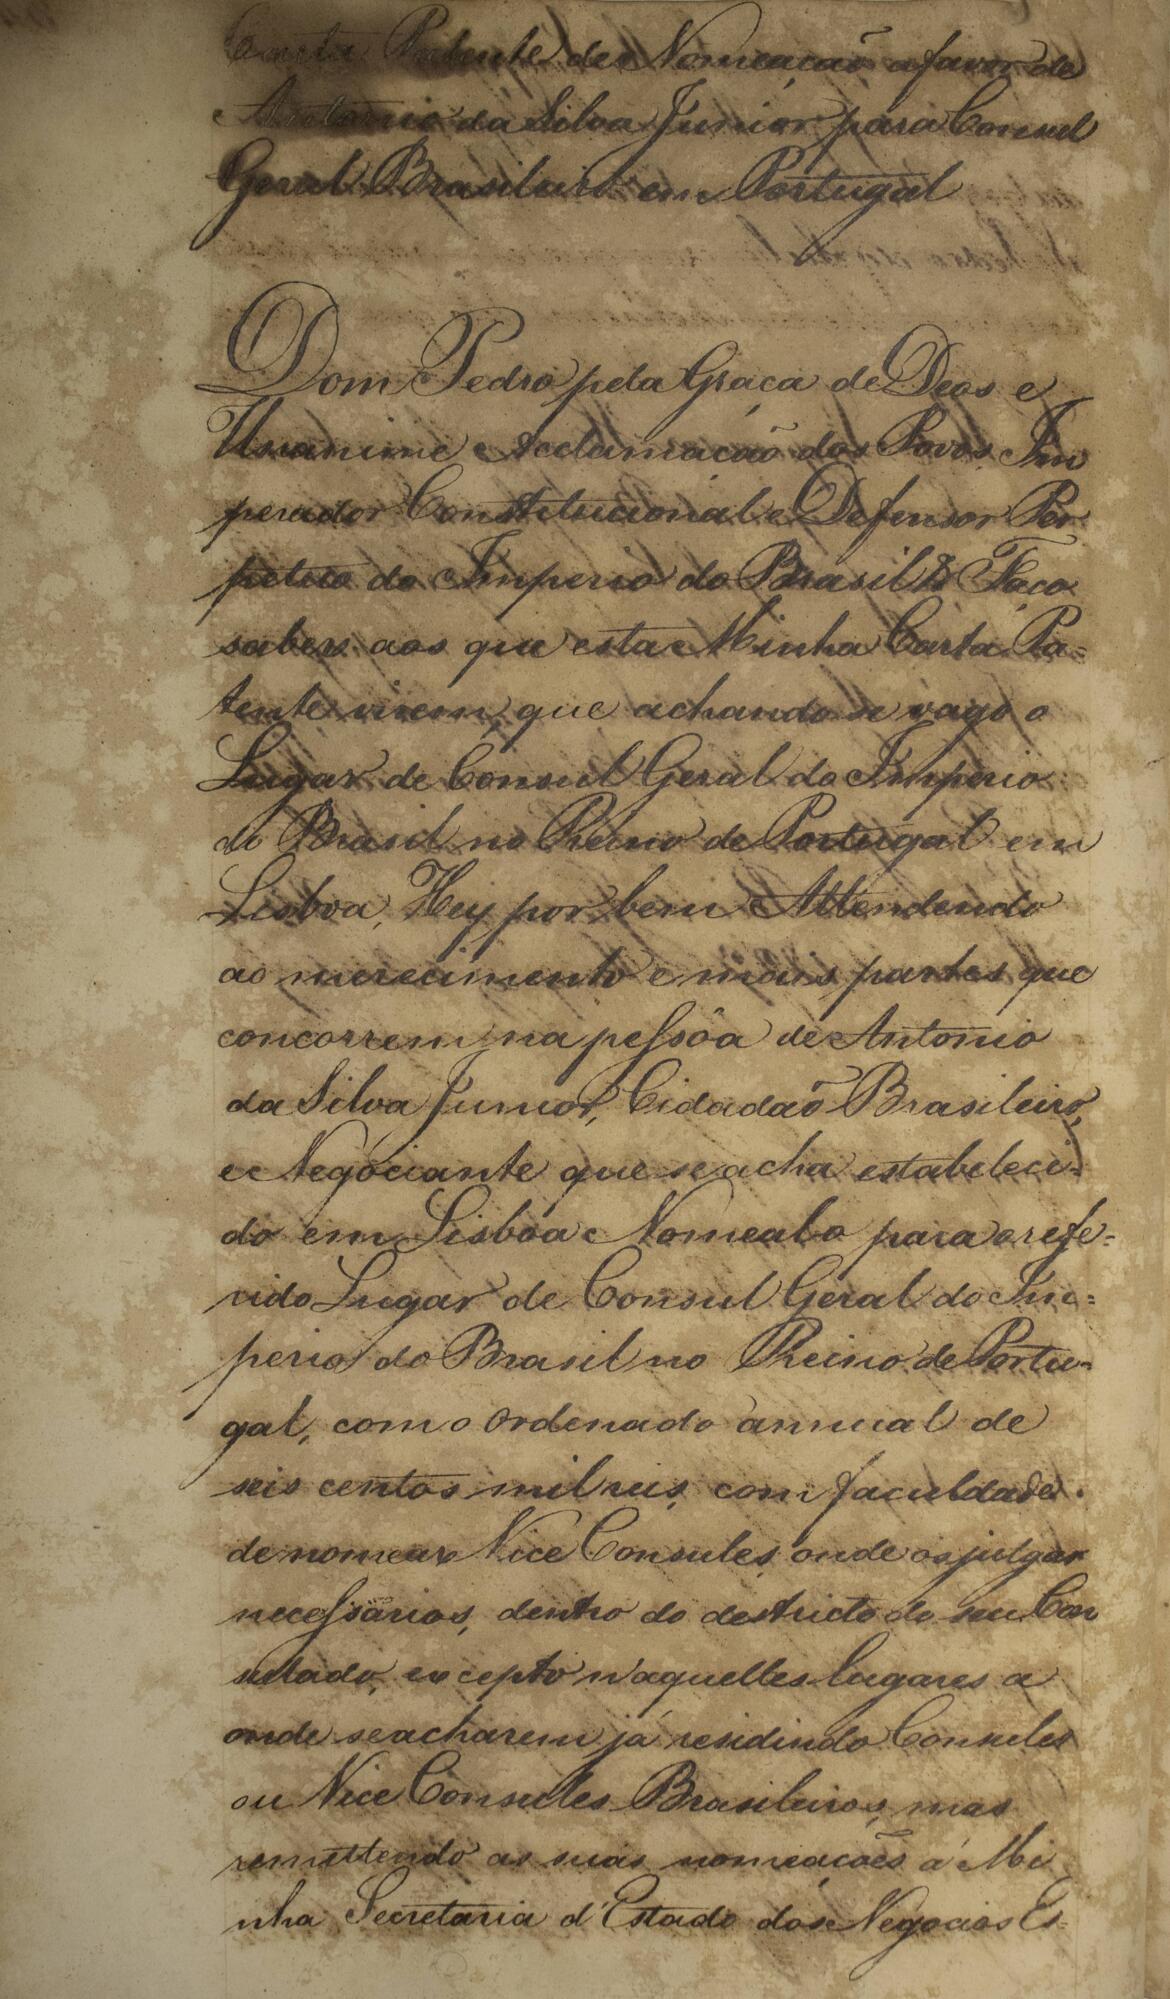 Carta Patente de Nomeação a favor de
Antonio da Silva Junior para Consul
Geral Brasileiro em Portugal
Dom Pedro pela Graça de Deos e
Unanime Acclamação dos Povos, Im
perador Constitucional e Defensor Per
petuo do Imperio do Brasil &ª Faço
saber aos que esta Minha Carta Pa=
tente virem, que achando se vago o
Lugar de Consul Geral do Imperio
do Brasil no Reino de Portugal em
Lisboa, Hey por bem Attendendo
ao merecimento e mais partes que
concorrem na pessôa de Antonio
da Silva Junior, Cidadaõ Brasileiro,
e Negociante que se acha estabeleci=
do em Lisboa Nomealo para o refe=
rido Lugar de Consul Geral do Im=
perio do Brasil no Reino de Portu=
gal, com o Ordenado annual de
seis centos mil reis, com faculdade
de nomear Vice Consules, onde os julgar
necessarios, dentro do destricto do seu Con
sulado, excepto n'aquelles lugares a
onde se acharem já residindo Consules
ou Vice Consules Brasileiros, mas
remettendo as suas nomeações á Mi
nha Secretaria d'Estado dos Negocios Es=